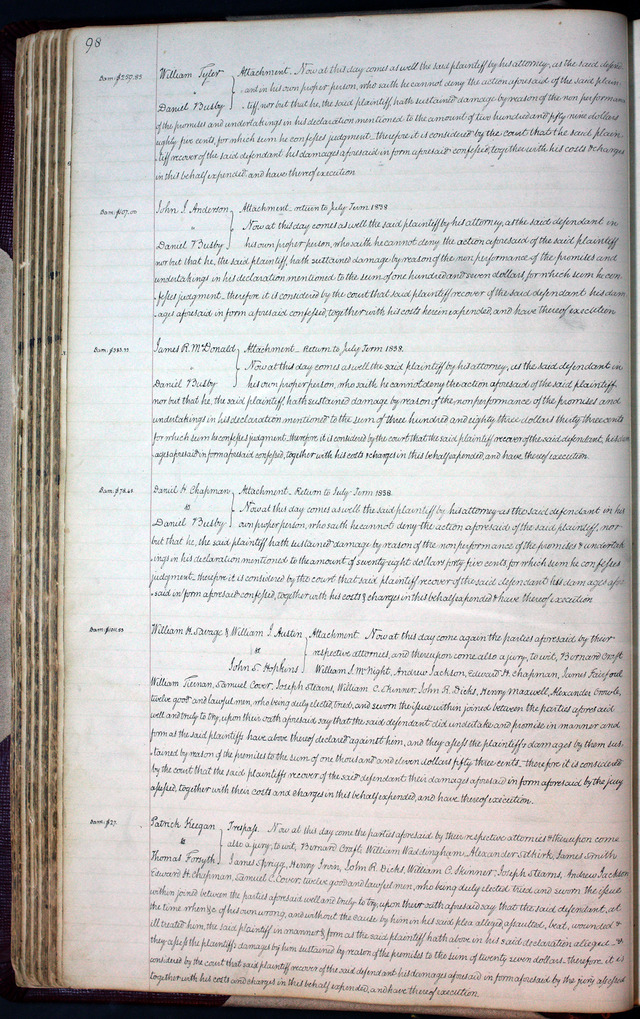 98
Dam. $259.85
William Tyler } Attachment_ Now at this day comes as well the said plaintiff by his attorney, as the said defend
" and in his own proper person, who saith he cannot deny the action aforesaid of the said plain-
Daniel Busby tiff nor but that he, the said plaintiff hath sustained damage by reason of the non performance
of the promises and undertakings in his declaration mentioned to the amount of two hundred and fifty nine dollars
eighty five cents, for which sum he confesses judgment_ therefore it is considered by the court that the said plain-
tiff recover of the said defendant his damages aforesaid in form aforesaid confessed, together with his costs & charges
in this behalf expended, and have thereof execution
Dam. $107.00
John J. Anderson } Attachment_ return to July Term 1838
" Now at this day comes as well the said plaintiff by his attorney, as the said defendant in
Daniel Busby his own proper person, who saith he cannot deny the action aforesaid of the said plaintiff
nor but that he, the said plaintiff, hath sustained damage by reason of the non performance of the promises and
undertakings in his declaration mentioned to the sum of one hundred and seven dollars for which sum he con-
fesses judgment_ therefore it is considered by the court that said plaintiff recover of the said defendant his dam
ages aforesaid in form aforesaid confessed, together with his costs herein expended, and have thereof execution
Dam. $383.33
James R. McDonald } Attachment_ Return to July Term 1838.
" Now at this day comes as well the said plaintiff by his attorney, as the said defendant in
Daniel Busby his own proper person, who saith he cannot deny the action aforesaid of the said plaintiff
nor but that he, the said plaintiff, hath sustained damage by reason of the nonperformance of the promises and
undertakings in his declaration mentioned to the sum of three hundred and eighty three dollars thirty three cents
for which sum he confesses judgment_ therefore it is considered by the court that the said plaintiff recover of the said defendant, his dam
ages aforesaid in form aforesaid confessed, together with his costs & charges in this behalf expended, and have thereof execution.
Dam. $78.45
Daniel H. Chapman } Attachment_ Return to July Term 1838.
vs Now at this day comes as well the said plaintiff by his attorney as the said defendant in his
Daniel Busby own proper person, who saith he cannot deny the action aforesaid of the said plaintiff, nor
but that he, the said plaintiff hath sustained damage by reason of the nonperformance of the promises & undertak
ings in his declaration mentioned to the amount of seventy eight dollars forty five cents for which sum he confesses
judgment_ therefore it is considered by the court that said plaintiff recover of the said defendant his damages afore
said in form aforesaid confessed, together with his costs & charges in this behalf expended & have thereof execution
William H. Savage & William S. Austin } Attachment. Now at this day come again the parties aforesaid by their
vs respective attornies, and thereupon come also a jury, to wit, Bernard Craft
John S. Hopkins William S. McNight, Andrew Jackson, Edward H. Chapman, James Fairford
William Tiernan, Samuel Cover, Joseph Stearns, William C. Skinner, John R. Dicks, Henry Maxwell, Alexander Crowls,
twelve good and lawful men, who being duly elected, tried, and sworn the issue within joined between the parties aforesaid
well and truly to try, upon their oath aforesaid say that the said defendant did undertake and promise in manner and
form as the said plaintiffs have above thereof declared against him, and they assess the plaintiffs damages by them sus-
tained by reason of the premises to the sum of one thousand and eleven dollars fifty three cents_ therefore it is considered
by the court that the said plaintiffs recover of the said defendant their damages aforesaid in form aforesaid by the jury
assessed, together with their costs and charges in this behalf expended, and have thereof execution.
Dam. $27.
Patrick Keegan } Trespass. Now at this day come the parties aforesaid by their respective attornies & thereupon come
vs also a jury, to wit, Bernard Craft, William Waddingham, Alexander Selkirk, James Smith
Thomas Forsyth James Sprigg, Henry Irvin, John R. Dicks, William C. Skinner, Joseph Stearns, Andrew Jackson
Edward H. Chapman, Samuel C. Cover, twelve good and lawful men, who being duly elected tried and sworn the issue
within joined between the parties aforesaid well and truly to try, upon their oath aforesaid say that the said defendant, at
the time when &c of his own wrong, and without the cause by him in his said plea alleged, assaulted, beat, wounded &
ill treated him, the said plaintiff in manner & form as the said plaintiff hath above in his said declaration alleged_ &
they assess the plaintiffs damages by him sustained by reason of the premises to the sum of twenty seven dollars_ therefore it is
considered by the court that said plaintiff recover of the said defendant his damages aforesaid in form aforesaid by the jury assessed
together with his costs and charges in this behalf expended, and have thereof execution.